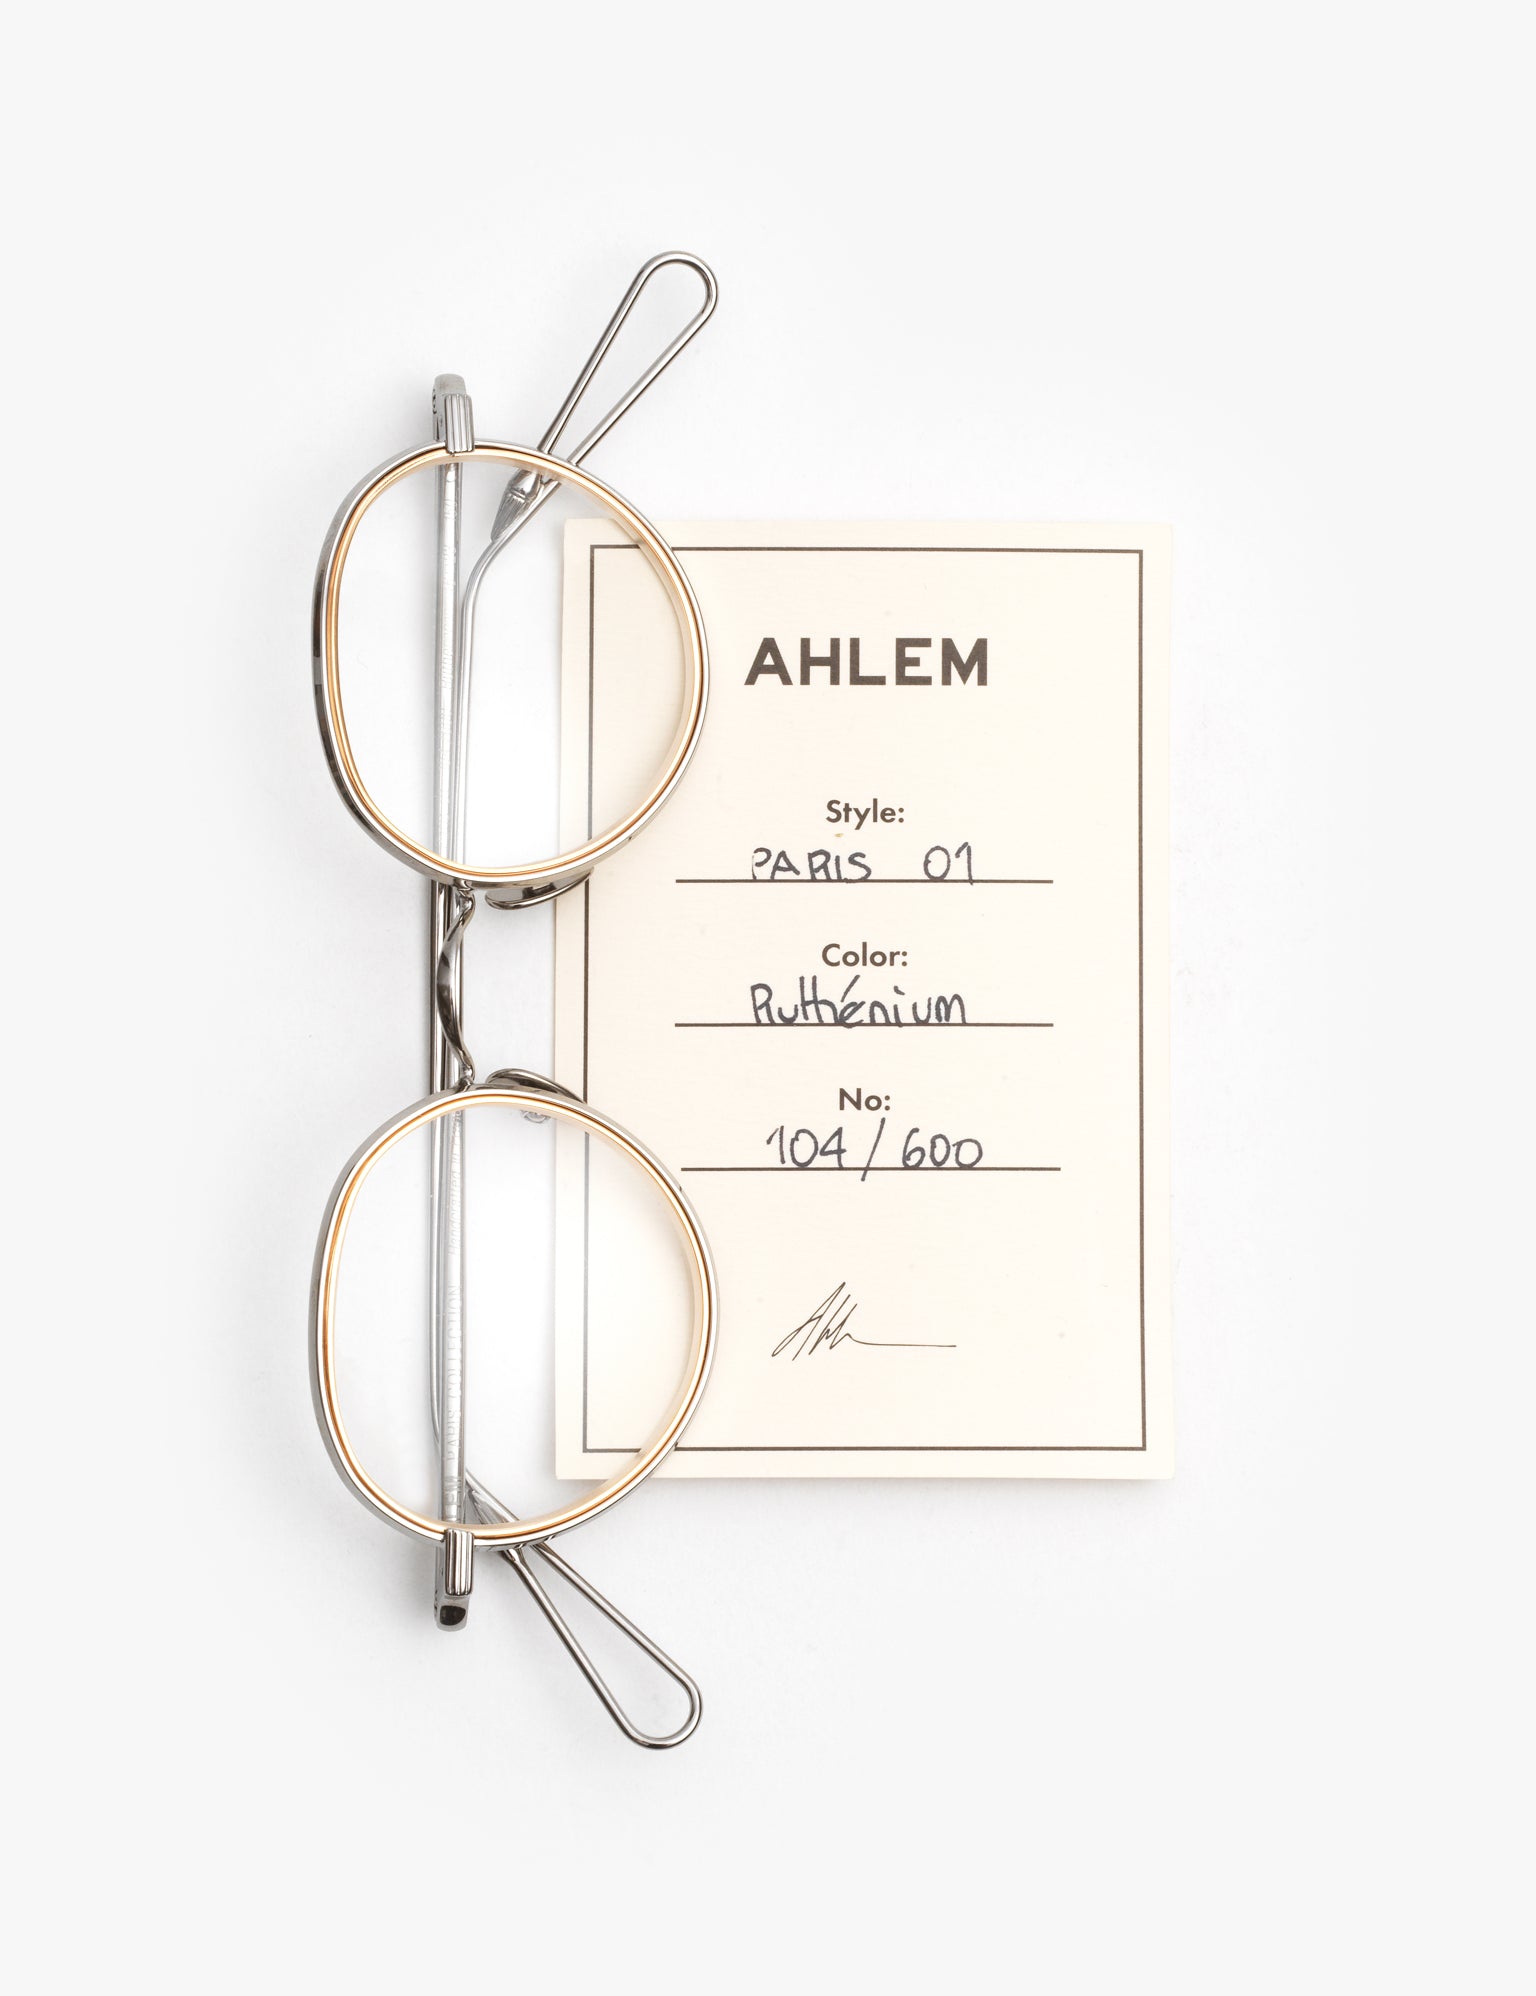 AHLEM
Style:
PARIS 01
Color:
Ruthénium
No:
104/600
PARIS COLLECTION
Handcrafted